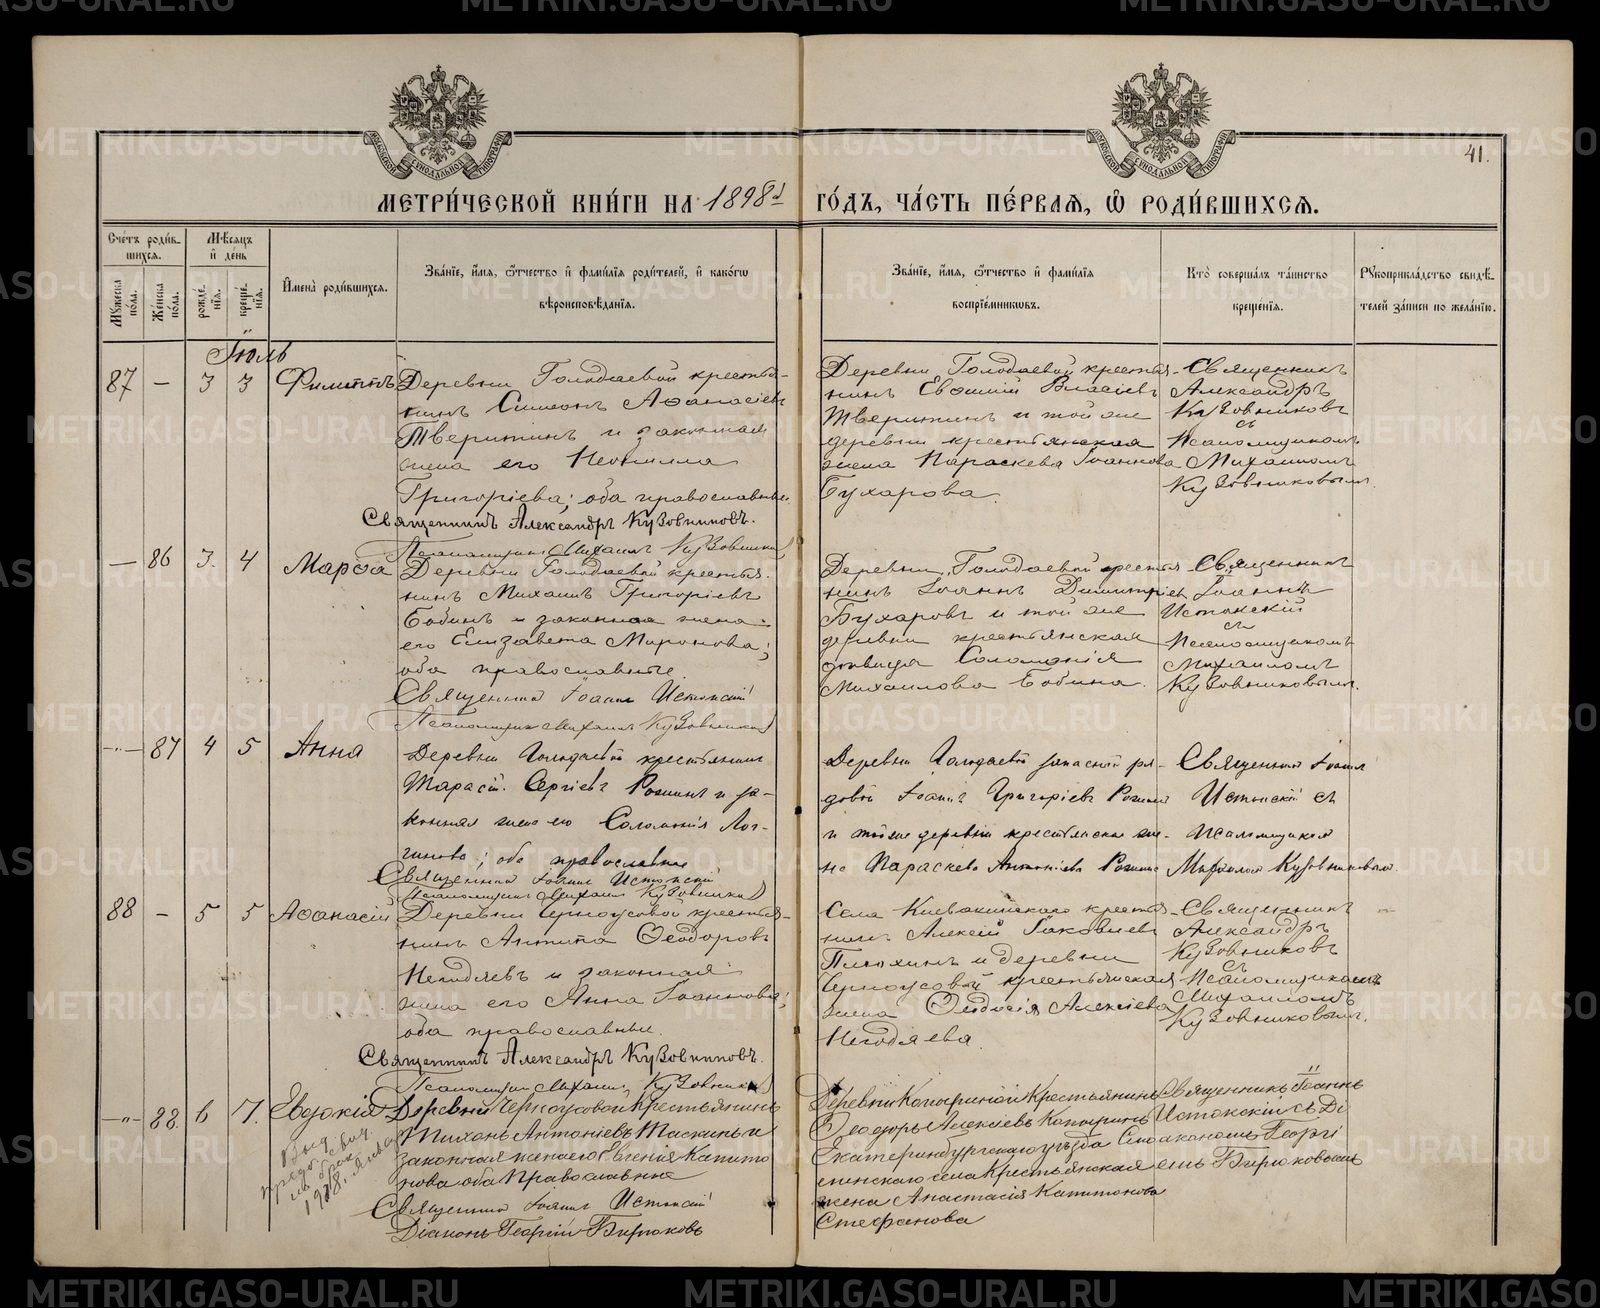 41.
МЕТРИ́ЧЕСКОЙ КНИ́ГИ НА 1898й ГО́ДЪ, ЧА́СТЬ ПЕ́РВАЯ, Ѡ РОДИ́ВШИХСЯ.
Сче́тъ роди́вшихся.
Му́жеска по́ла.
Же́нска по́ла.
Мѣ́сяцъ и де́нь
рожде́нїя.
креще́нїя.
Имена̀ роди́вшихся.
Зва́нїе, и́мя, ѻ́тчество и фами́лїя роди́телей, и како́гѡ вѣроисповѣ́данїя.
Зва́нїе, и́мя, ѻ́тчество и фами́лїя воспрїе́мниковъ.
Кто̀ соверша́лъ та́инство креще́нїя.
Рꙋкоприкла́дство свидѣ́телей за́писи по жела́нїю.
Іюль
87 — 3 3 Филиппъ
Деревни Голодаевой крестья-
нинъ Симеонъ Аѳанасіевъ
Тверитинъ и законная
жена его Неонилла
Григоріева; оба православные.
Священникъ Александръ Кузовниковъ.
Псаломщикъ Михаилъ Кузовников
Деревни Голодаевой крестья-
нинъ Евѳимій Власіевъ
Тверитинъ и той же
деревни крестьянская
жена Параскева Іоаннова
Бухарова.
Священникъ
Александръ
Кузовниковъ
съ
Псаломщикомъ
Михаиломъ
Кузовниковымъ.
— 86 3. 4 Марѳа
Деревни Голодаевой крестья-
нинъ Михаилъ Григоріевъ
Бабинъ и законная жена
его Елизавета Миронова;
оба православные
Священникъ Іоаннъ Истокскій
Псаломщикъ Михаилъ Кузовников
Деревни Голодаевой крестья-
нинъ Іоаннъ Димитріевъ
Бухаровъ и той же
деревни крестьянская
дѣвица Соломонія
Михаилова Бабина.
Священникъ
Іоаннъ
Истокскій
съ
Псаломщикомъ
Михаиломъ
Кузовниковымъ.
—"— 87 4 5 Анна
Деревни Голодаевой крестьянинъ
Тарасій Сергіевъ и за-
конная жена его Соломонія Лог-
гинова; оба православные
Священникъ Іоаннъ Истокскій
Псаломщикъ Михаилъ Кузовников
Деревни Голодаевой запасной ря-
довой Іоаннъ Григоріевъ
и той же деревни крестьянская же-
на Параскева Антоніева
Священникъ Іоаннъ
Истокскій съ
Псаломщикомъ
Михаиломъ Кузовниковымъ
88 — 5 5 Аѳанасій
Деревни Черноусовой крестья-
нинъ Антипа Ѳеодоровъ
Негодяевъ и законная
жена его Анна Іоаннова;
оба православные.
Священникъ Александръ Кузовниковъ.
Псаломщикъ Михаилъ Кузовников
Села крестья-
нинъ Алексій Іаковлевъ
Плюхинъ и деревни
Черноусовой крестьянская
жена Ѳеодосія Алексіева
Негодяева.
Священникъ
Александръ
Кузовниковъ
съ
Псаломщикомъ
Михаиломъ
Кузовниковымъ.
—"— 88. 6 7. Евдокія
Выд.
свид.
на брак
1918 г.
Деревни Черноусовой Крестьянинъ
Тихонъ Антоніевъ Таскинъ и
законная жена его Евгенія Капито
нова оба Православные
Священникъ Іоаннъ Истокскій
Діаконъ Георгій Бирюковъ
Деревни Крестьянинъ
Ѳеодоръ Алексіевъ
Екатеринбургскаго уѣзда
села Крестьянская
жена Анастасія Капитонова
Стефанова
Священникъ Іоаннъ
Истокскій съ Ді
акономъ Георгі
емъ Бирюковымъ
METRIKI.GASO-URAL.RU